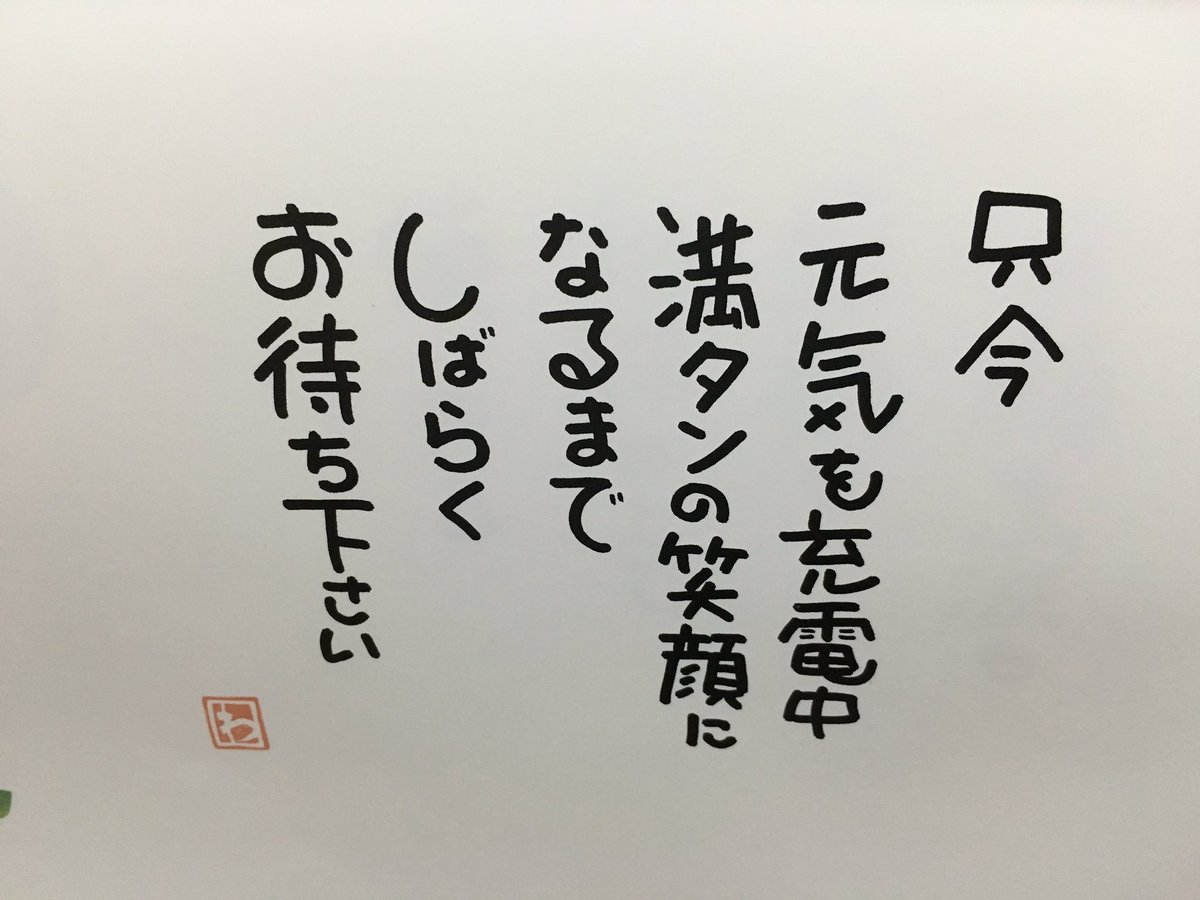 只今
元気を充電中
満タンの笑顔に
なるまで
しばらく
お待ち下さい
わ